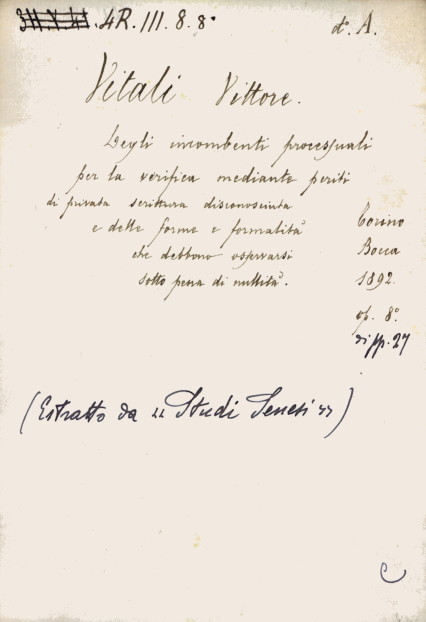 4R. III. 8. 8.
d°. A.
Vitali Vittore.
Degli incombenti processuali
per la verifica mediante periti
di privata scrittura disconosciuta
e delle forme e formalità
che debbono osservarsi
sotto pena di nullità.
Torino
Bocca
1892.
op. 8°.
di pp. 27
(Estratto da "Studi Senesi")
C